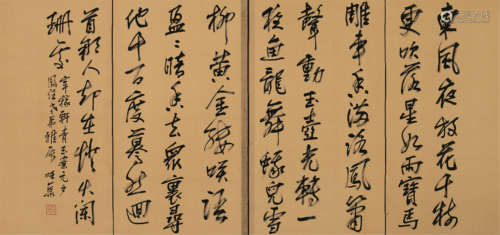 東風夜放花千樹
更吹落星如雨寶馬
雕車香滿路鳳簫
聲動玉壺光轉一
夜魚龍舞蛾兒雪
柳黃金縷笑語
盈〻暗香去眾裏尋
他千百度驀然迴
首那人却在燈火闌
珊處
辛稼軒青玉案元夕